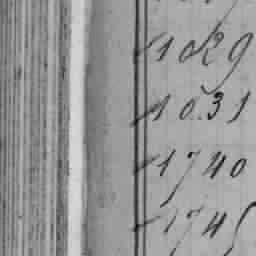 1029
1031
1740
1745